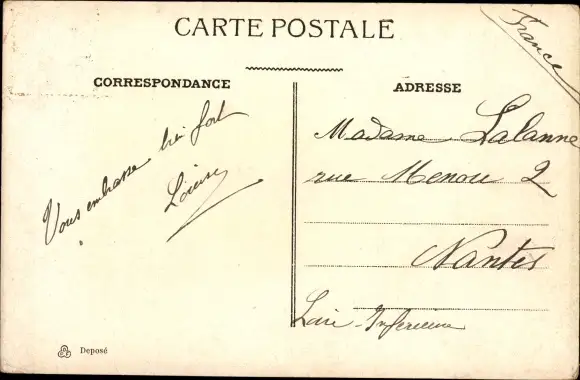 CARTE POSTALE
France
CORRESPONDANCE
Vous embrasse bien fort
Louise
ADRESSE
Madame Lalanne
rue Menou 2
Nantes
Loire-Inférieure
Deposé